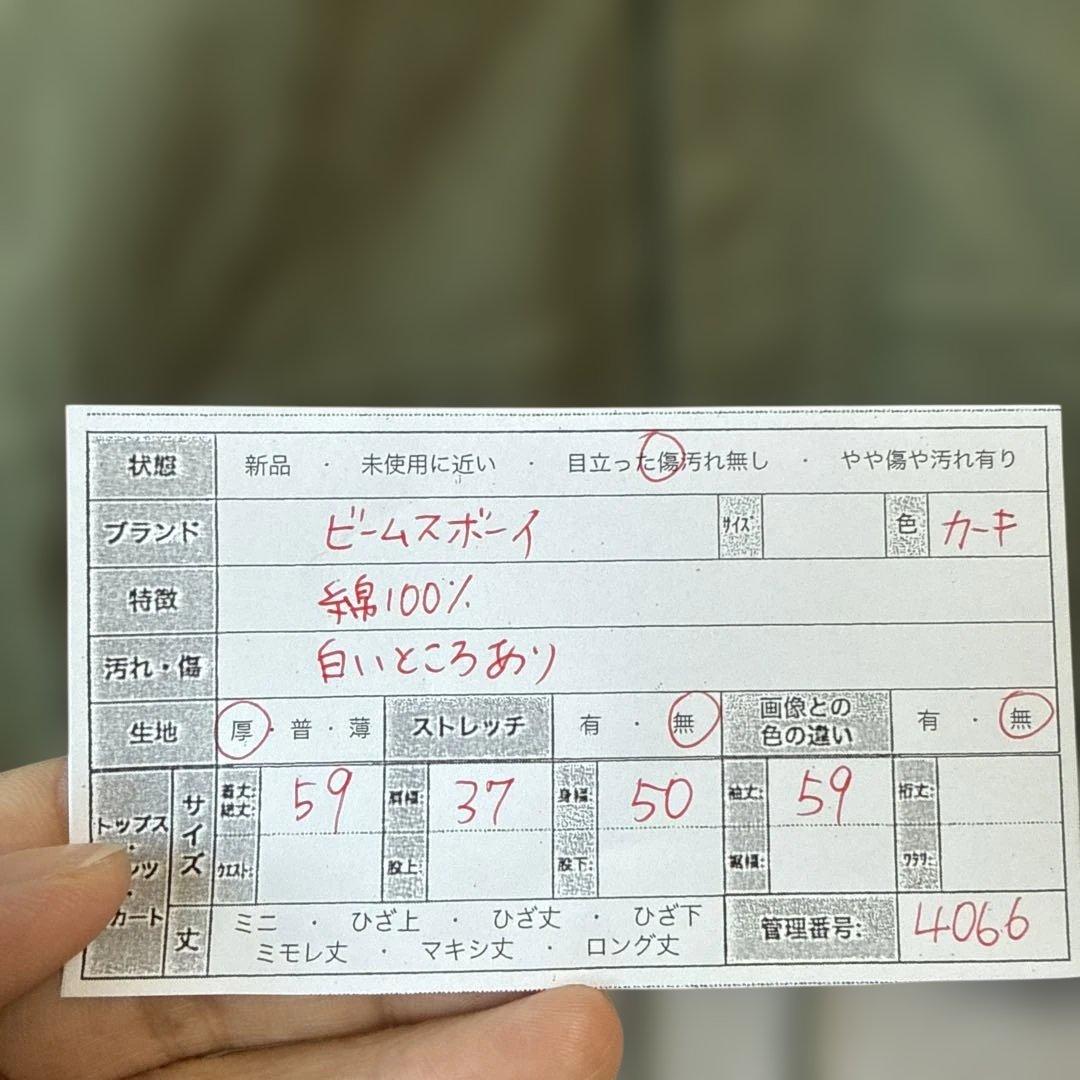 状態 新品 ・ 未使用に近い ・ 目立った傷汚れ無し ・ やや傷や汚れ有り
ブランド ビームスボーイ サイズ 色 カーキ
特徴 綿100%
汚れ・傷 白いところあり
生地 厚・普・薄 ストレッチ 有 ・ 無 画像との色の違い 有 ・ 無
トップス・ カート サイズ 着丈: 総丈: 59 肩幅: 37 身幅: 50 袖丈: 59 裄丈:
ウエスト: 股上: 股下: 裾幅: ワタリ:
丈 ミニ ・ ひざ上 ・ ひざ丈 ・ ひざ下
ミモレ丈 ・ マキシ丈 ・ ロング丈
管理番号: 4066